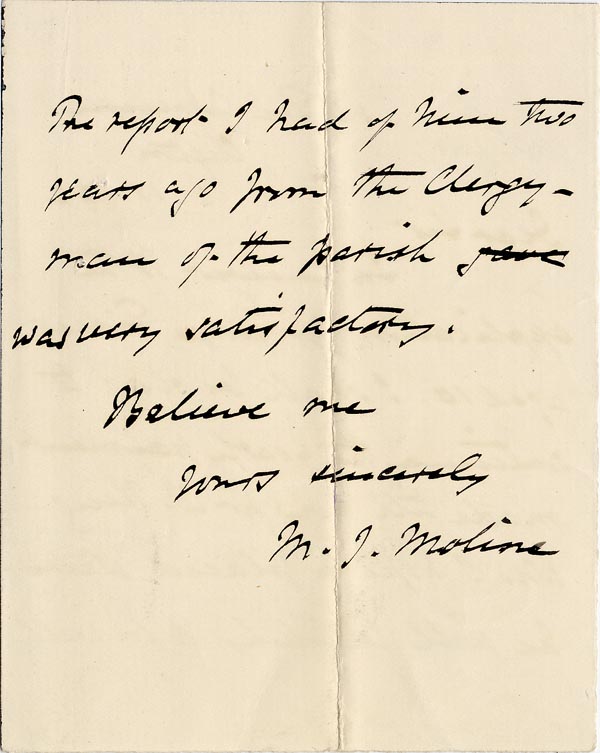 The report I had of him two
years ago from the Clergy-
man of the parish gave
was very satisfactory.
Believe me
yours sincerely
M. J. Moline